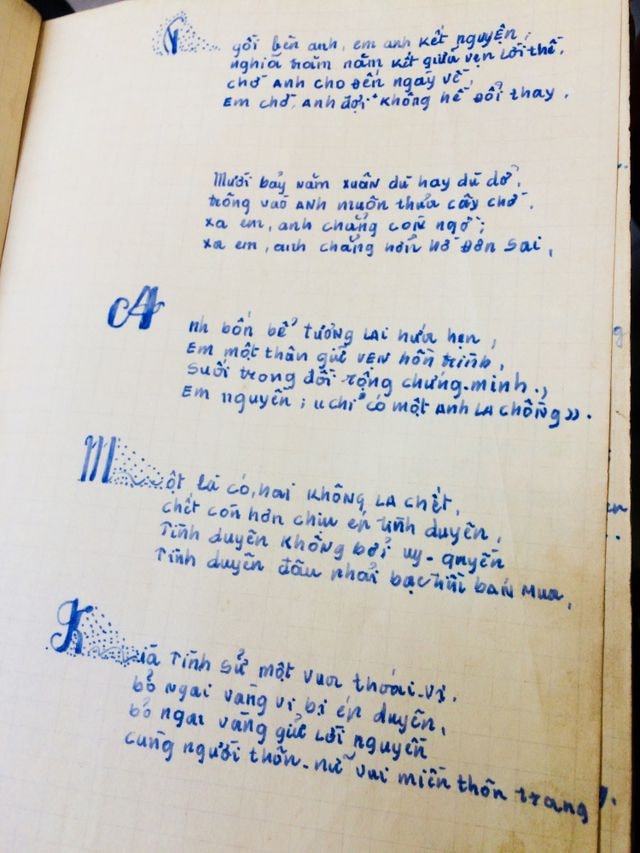 Ngồi bên anh, em anh kết nguyện,
nghĩa trăm năm kết giữa vẹn lời thề.
chờ Anh cho đến ngày về,
Em chờ, Anh đợi không hề đổi thay.
Mười bảy năm xuân dù hay dù dở,
trông vào Anh muôn thửa cậy chờ.
xa em, anh chẳng còn ngờ;
xa em, anh chẳng hồn hờ đơn sai,
Anh bốn bể tương lai hứa hẹn,
Em một thân giữ vẹn hồn trinh,
Suối trong đồi rộng chứng-minh.,
Em nguyền; "chỉ có một Anh là chồng».
Một là có, hai không là chết,
chết còn hơn chịu ép tình duyên,
Tình duyên không bởi uy-quyền
Tình duyên đâu phải bạc tiền bán mua,
Kià Tình Sử một vua thoái-vị,
bỏ ngai vàng vị bị ép duyên,
bỏ ngai vàng giữ lời nguyền
cùng người thôn-nữ vui miền thôn trang.